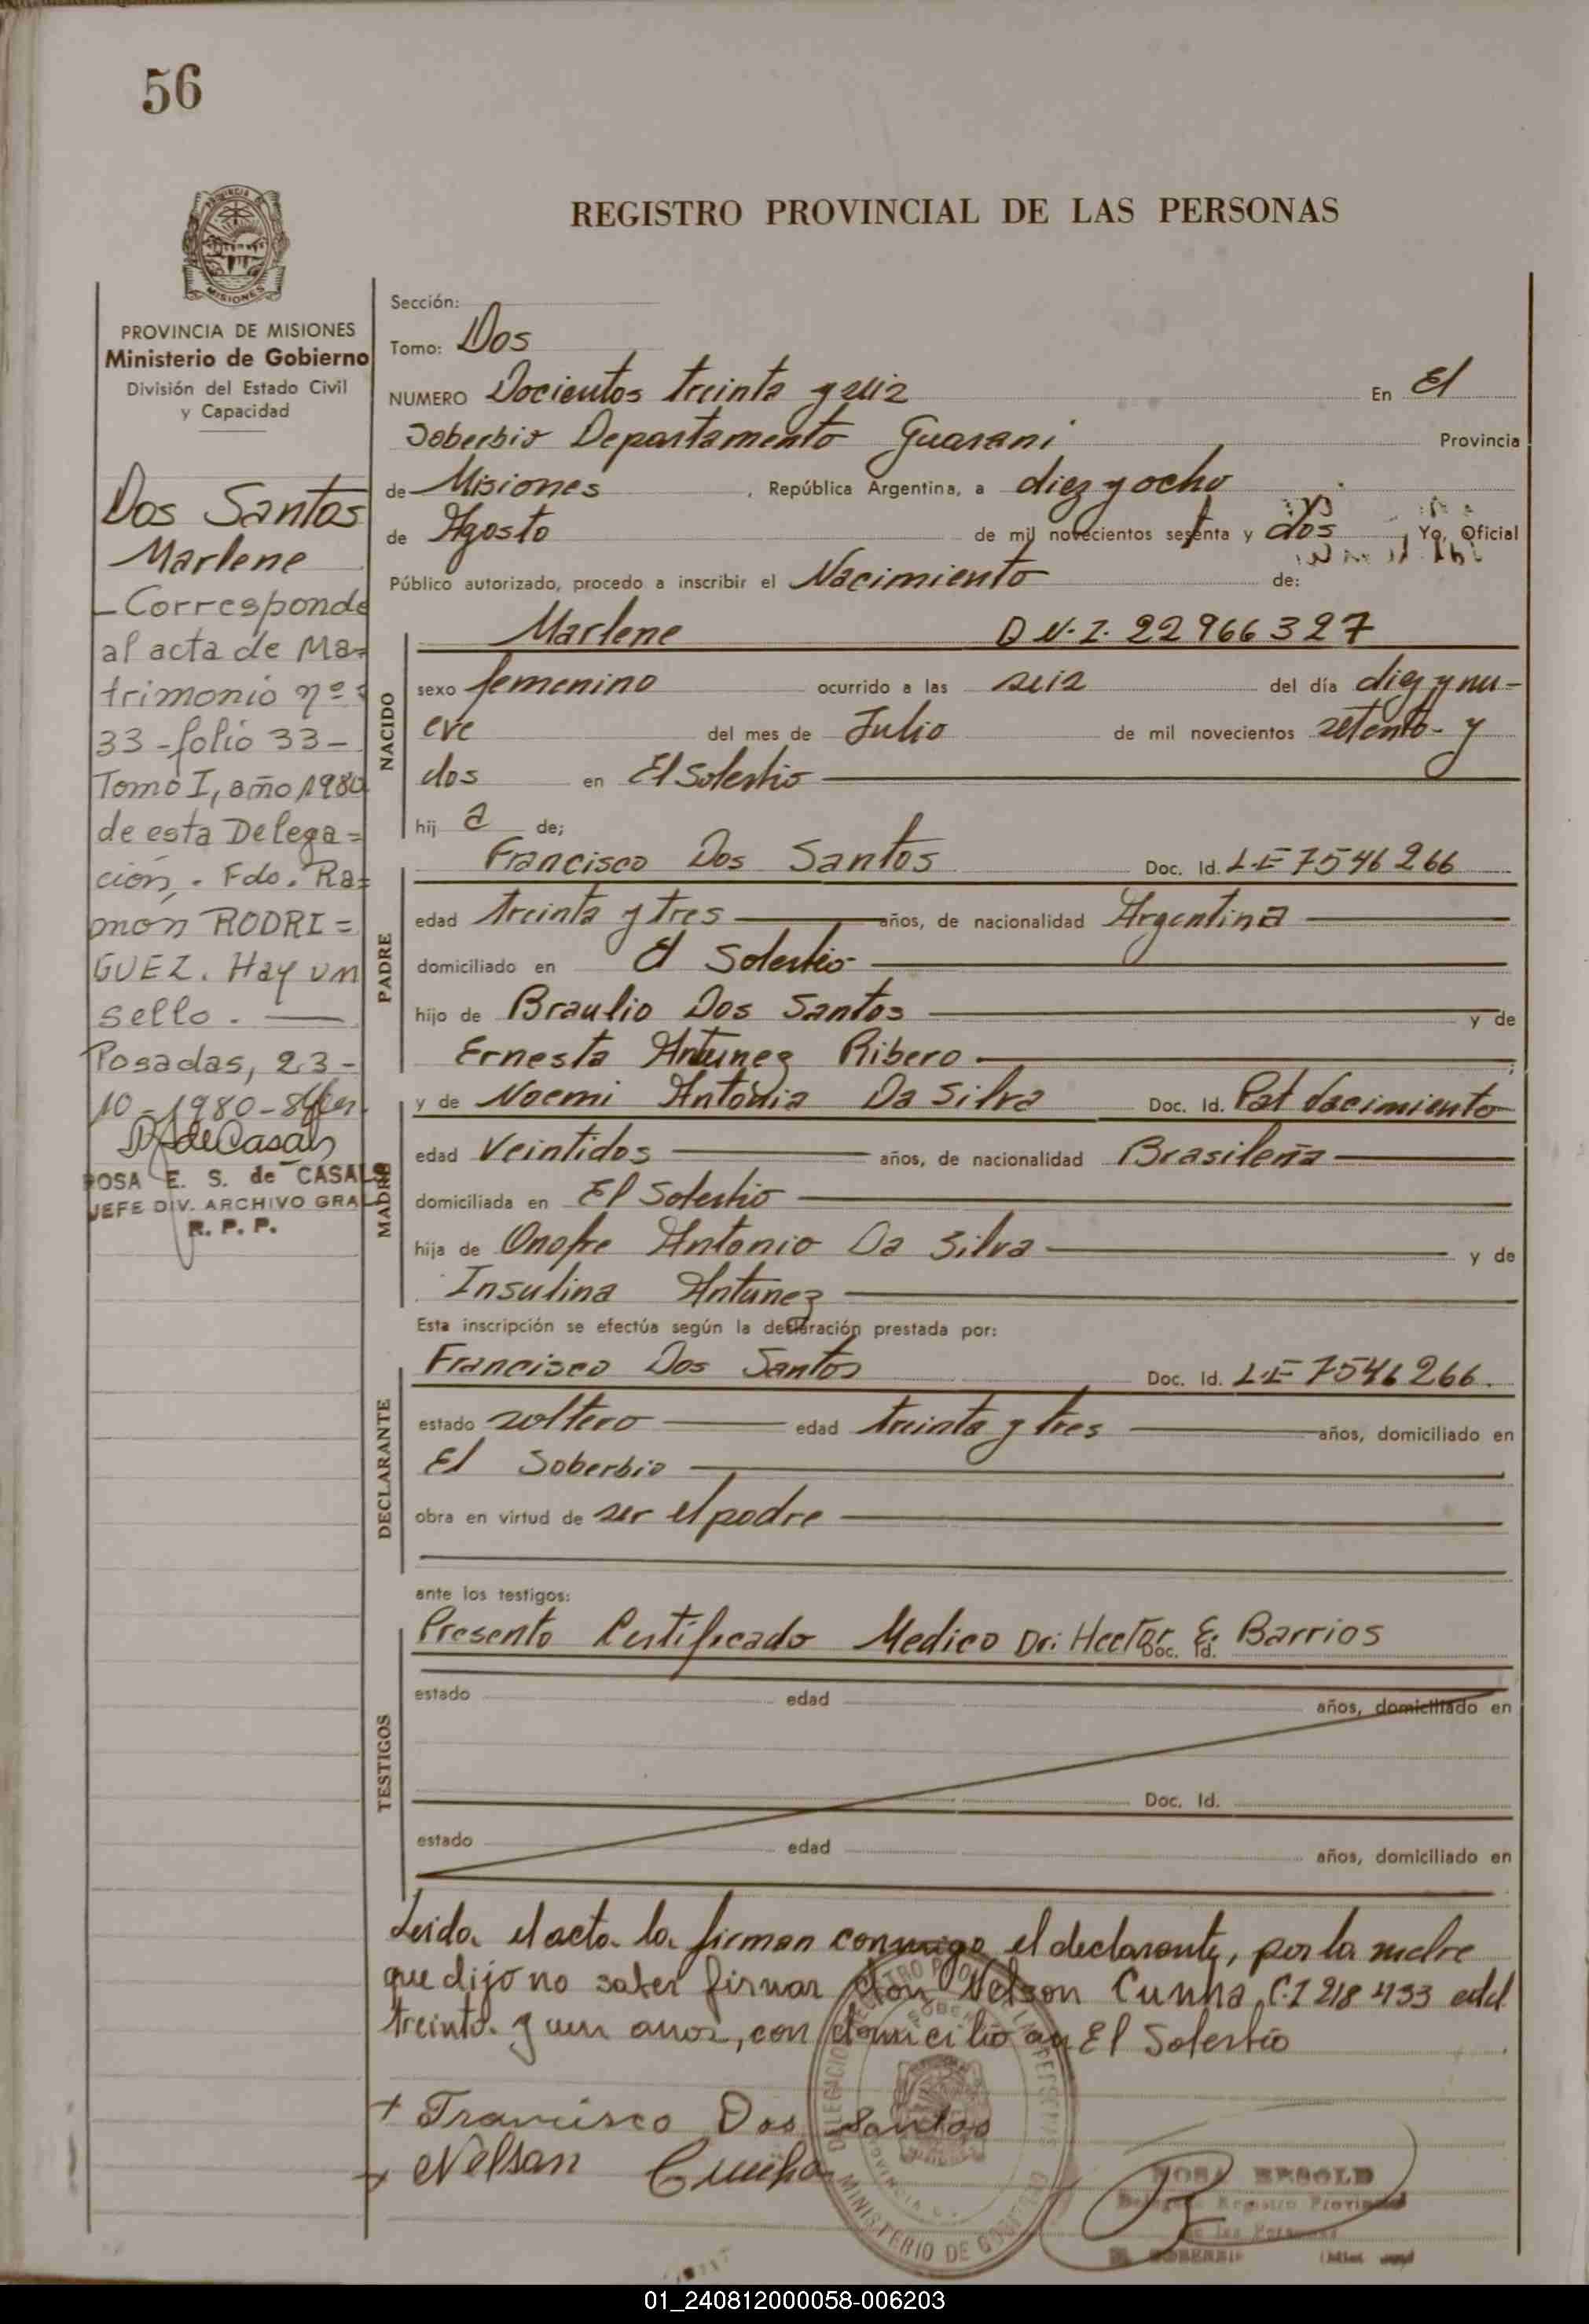 56
REGISTRO PROVINCIAL DE LAS PERSONAS
PROVINCIA DE MISIONES
Ministerio de Gobierno
División del Estado Civil
y Capacidad
Dos Santos
Marlene
- Corresponde
al acta de Ma=
trimonio nº
33 - folio 33 -
Tomo I, año 1980
de esta Delega=
ción. Fdo. Ra=
món RODRI=
GUEZ. Hay un
sello.
Posadas, 23-
10-1980-
ROSA E. S. de CASALS
JEFE DIV. ARCHIVO GRAL
R. P. P.
Sección:
Tomo: Dos
NUMERO Docientos treinta y seis En El
Soberbio Departamento Guarani Provincia
de Misiones, República Argentina, a diez y ocho
de Agosto de mil novecientos setenta y dos, Yo, Oficial
Público autorizado, procedo a inscribir el Nacimiento de:
NACIDO
Marlene D.N.I. 22966327
sexo femenino ocurrido a las seis del día diez y nu-
eve del mes de Julio de mil novecientos setenta y
dos en El Soberbio
hij a de;
PADRE
Francisco Dos Santos Doc. Id. L-E 7546266
edad treinta y tres años, de nacionalidad Argentina
domiciliado en El Soberbio
hijo de Braulio Dos Santos y de
Ernesta Antunez Ribero ;
MADRE
y de Noemi Antonia Da Silva Doc. Id. Part Nacimiento
edad Veintidos años, de nacionalidad Brasileña
domiciliada en El Soberbio
hija de Onofre Antonio Da Silva y de
Insulina Antunez
Esta inscripción se efectúa según la declaración prestada por:
DECLARANTE
Francisco Dos Santos Doc. Id. L-E 7546266.
estado soltero edad treinta y tres años, domiciliado en
El Soberbio
obra en virtud de ser el padre
ante los testigos:
TESTIGOS
Presento Certificado Medico Dr: Hector E. Barrios Doc. Id.
estado edad años, domiciliado en
Doc. Id.
estado edad años, domiciliado en
Leida el acta la firman conmigo el declarante, por la madre
que dijo no saber firmar don Nelson Cunha C.I 218433 edad
treinta y un anos, con domicilio en El Soberbio
+ Francisco Dos Santos
+ Nelson Cunha
MINISTERIO DE GOBIERNO
ROSA
01_240812000058-006203